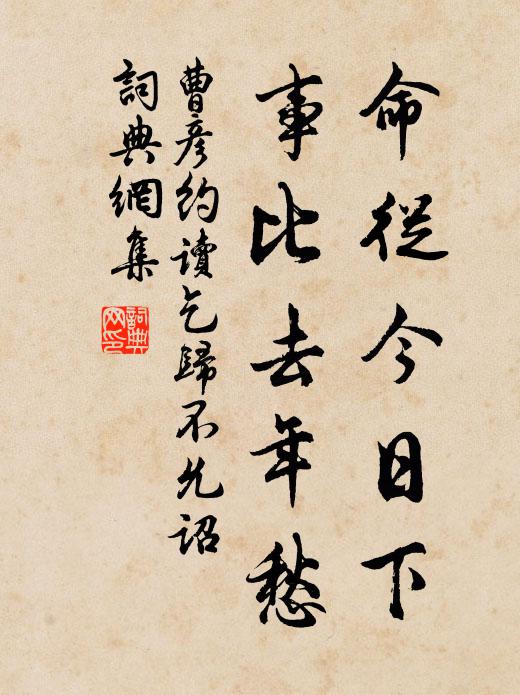 命從今日下
事比去年愁
曹彦約讀乞歸不允詔
詞典網集
詞典网印